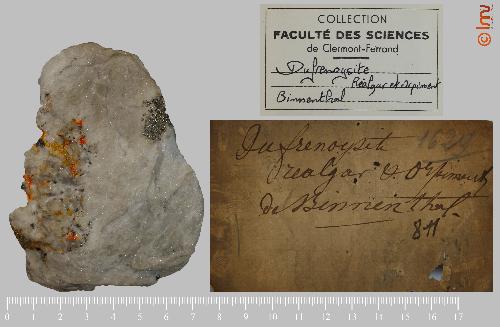 COLLECTION
FACULTÉ DES SCIENCES
de Clermont-Ferrand
Dufrenoysite
Réalgar et Orpiment
Binnenthal
Dufrenoysite 1624
Réalgar & Orpiment
de Binnenthal
811
0 1 2 3 4 5 6 7 8 9 10 11 12 13 14 15 16 17
© lmv